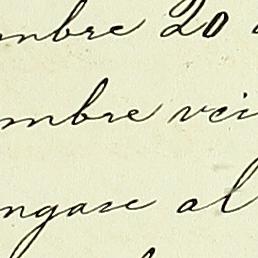 mbre 20
mbre vei
ngase al